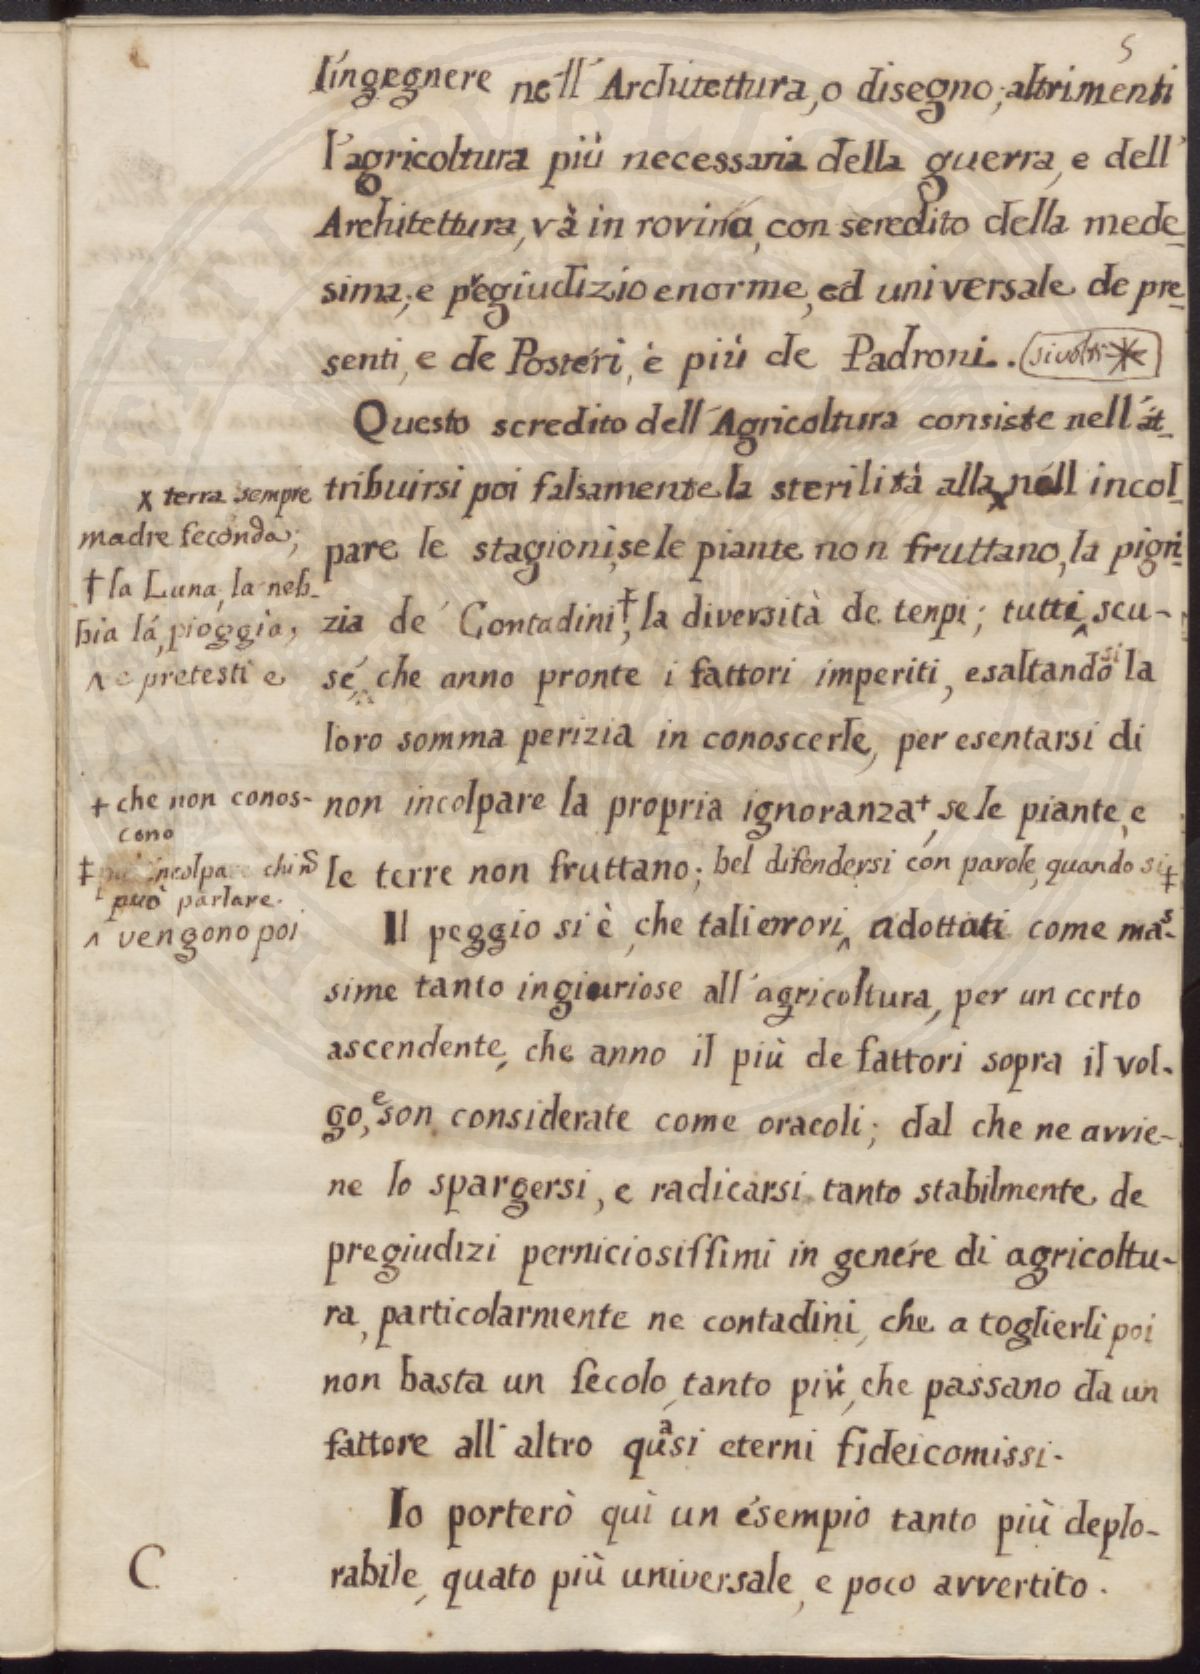 5
l'ingegnere nell'Architettura, o disegno; altrimenti
l'agricoltura più necessaria della guerra, e dell'
Architettura, và in rovina, con scredito della mede-
sima; e pregiudizio enorme, ed universale de pre-
senti, e de Posteri, è più de Padroni..
Questo scredito dell'Agricoltura consiste nell'at-
x terra sempre
madre feconda;
tribuirsi poi falsamente la sterilità alla x nell incol-
pare le stagioni, se le piante non fruttano, la pigri-
† la Luna, la neb-
bia la pioggia,
zia de' Contadini†, la diversità de tenpi; tutti ^ scu-
^ e pretesti e
se, che anno pronte i fattori imperiti, esaltandosi la
loro somma perizia in conoscerle, per esentarsi di
+ che non conos-
cono
non incolpare la propria ignoranza+, se le piante, e
‡ incolpare chi nō
può parlare.
le terre non fruttano; bel difendersi con parole, quando si ‡
^ vengono poi
Il peggio si è, che tali errori ^ adottati come mas-
sime tanto ingiuriose all'agricoltura, per un certo
ascendente, che anno il più de fattori sopra il vol-
go, e son considerate come oracoli; dal che ne avvie-
ne lo spargersi, e radicarsi tanto stabilmente de
pregiudizi perniciosissimi in genere di agricoltu-
ra, particolarmente ne contadini, che a toglierli poi
non basta un secolo, tanto più, che passano da un
fattore all'altro quasi eterni fideicomissi.
Io porterò quì un esempio tanto più deplo-
rabile, quato più universale, e poco avvertito.
C